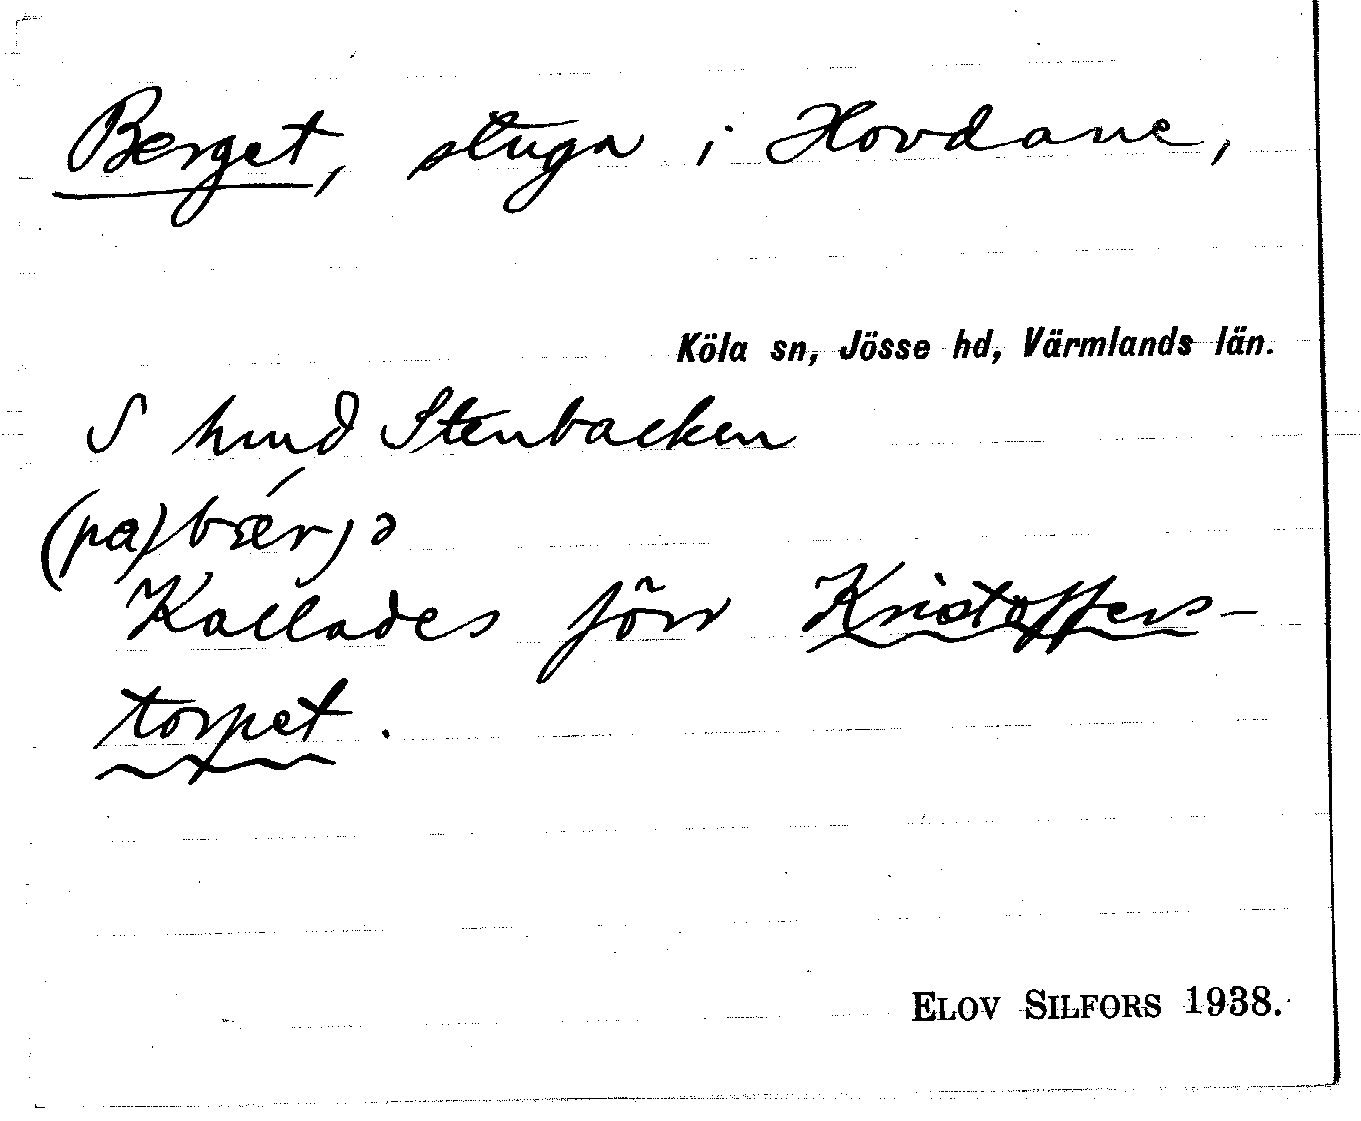 Berget, stuga i Hovdane,
Köla sn, Jösse hd, Värmlands län.
S Stenbacken
(pa) bærjə
Kallades förr Kristoffers-
torpet.
ELOV SILFORS 1938.